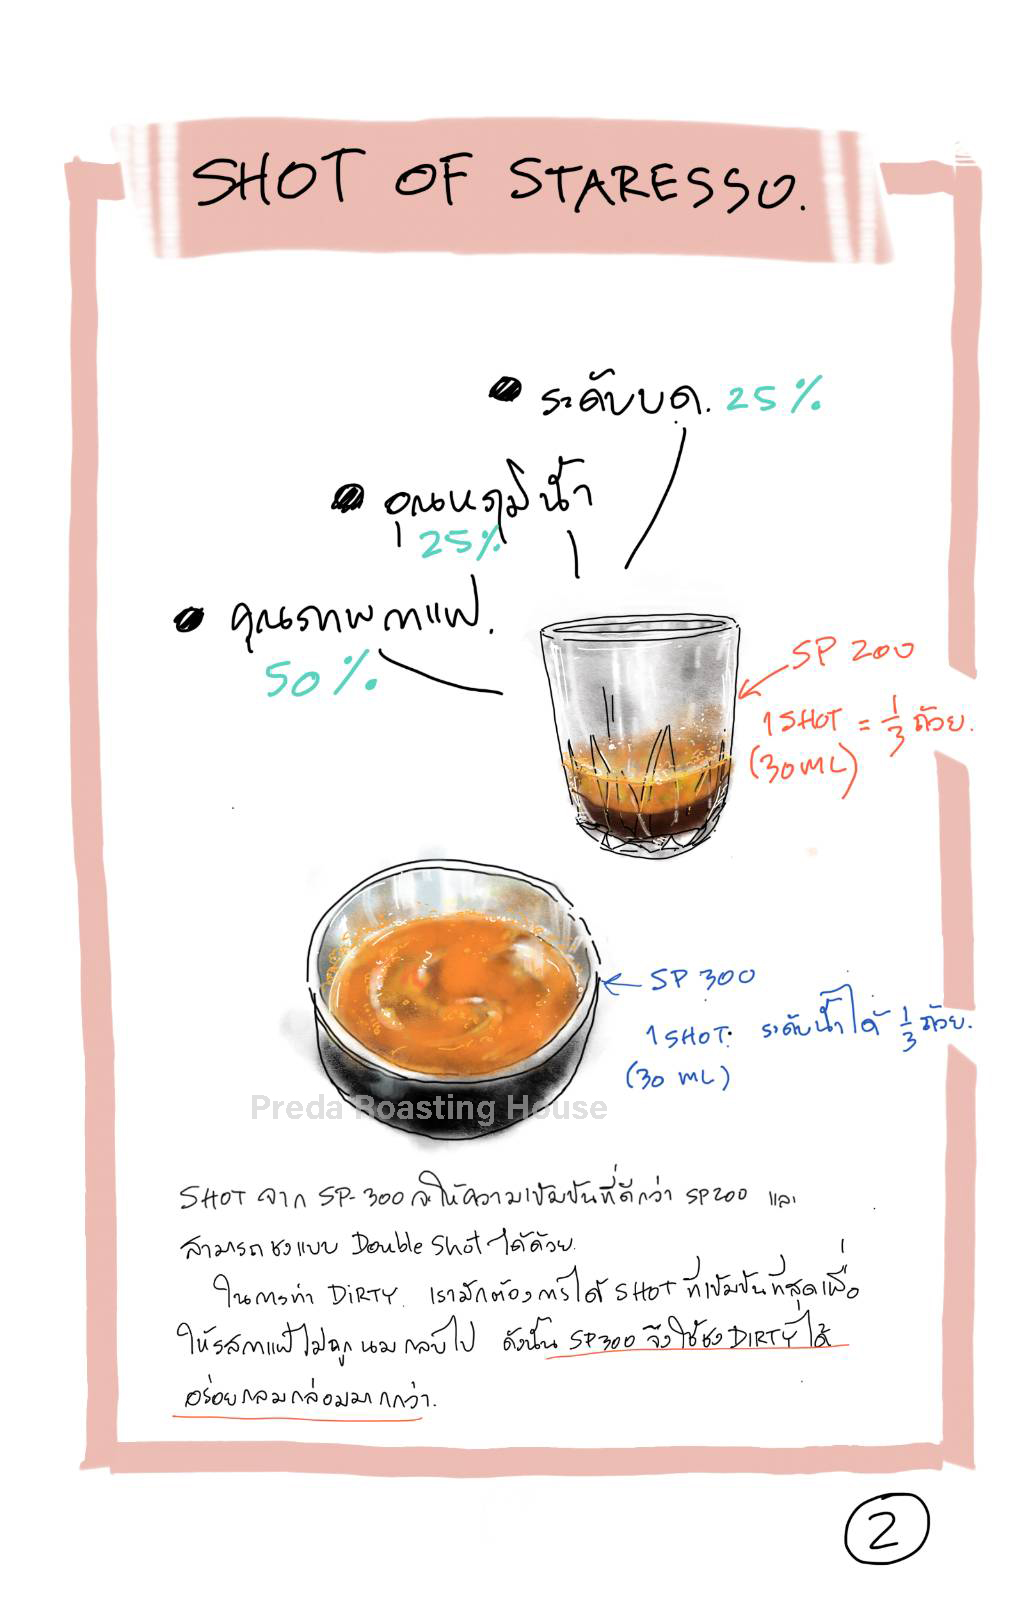 SHOT OF STARESSO.
● ระดับบด. 25%
● อุณหภูมิน้ำ
25%
● คุณภาพกาแฟ.
50%
SP 200
1 SHOT = 1/3 ถ้วย.
(30 ML)
SP 300
1 SHOT. ระดับน้ำได้ 1/3 ถ้วย.
(30 ML)
Preda Roasting House
SHOT จาก SP-300 จะให้ความเข้มข้นที่ดีกว่า SP200 และ
สามารถชงแบบ Double Shot ได้ด้วย.
ในการทำ DIRTY. เรามักต้องการได้ SHOT ที่เข้มข้นที่สุดเพื่อ
ให้รสกาแฟไม่ถูกนมกลบไป ดังนั้น SP300 จึงใช้ชง DIRTY ได้
อร่อยกลมกล่อมมากกว่า.
2